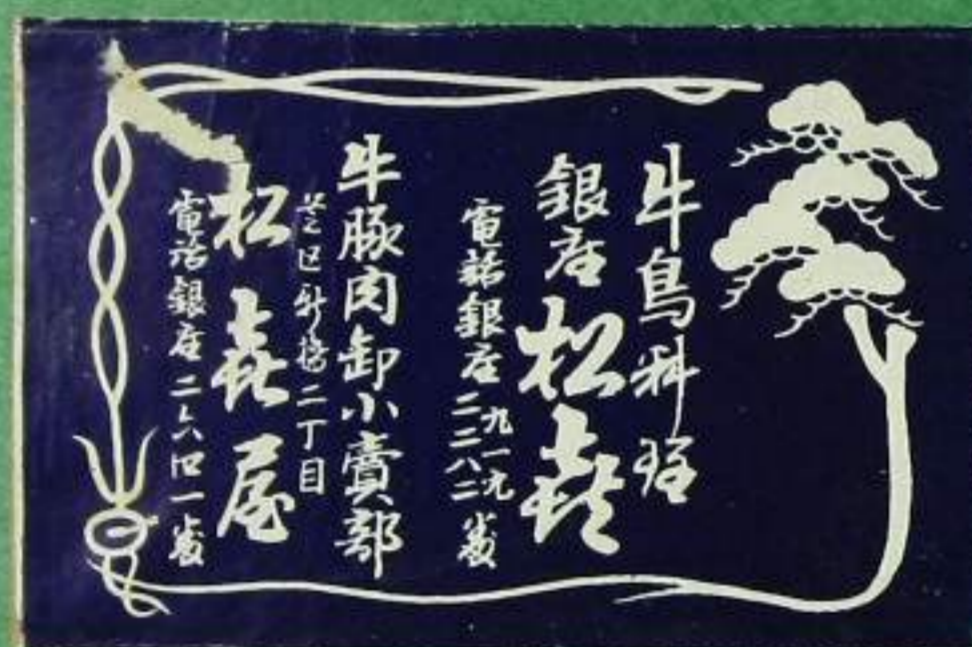 牛鳥料理
銀座松喜
電話銀座 九一九 二二八二番
牛豚肉卸小賣部
芝区新橋二丁目
松喜屋
電話銀座二六四一番